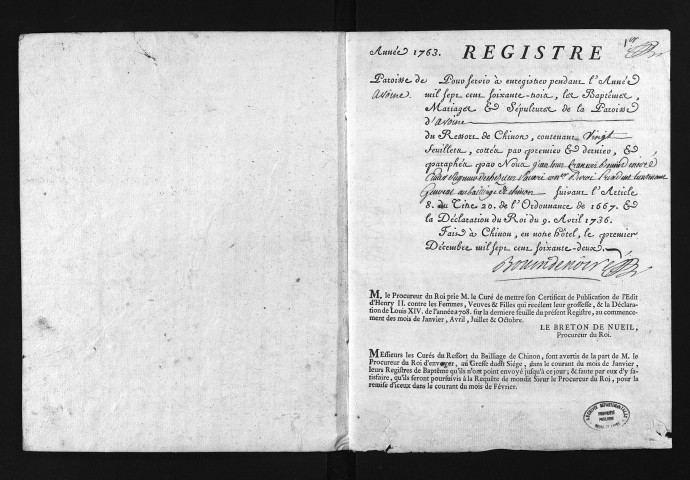 Année 1763. REGISTRE 1er
Paroisse de Pour servir à enregistrer pendant l'Année
Avoine mil sept cent soixante-trois, les Baptêmes,
Mariages & Sépultures de la Paroisse
d'avoine
du Ressort de Chinon, contenant vingt
feuillets, cottés par premier & dernier, &
paraphés par Nous
General au bailliage de chinon suivant l'Article
8. du Titre 20. de l'Ordonnance de 1667. &
la Déclaration du Roi du 9. Avril 1736.
Fait à Chinon, en notre hôtel, le premier
Décembre mil sept cent soixante-deux.
M. le Procureur du Roi prie M. le Curé de mettre son Certificat de Publication de l'Edit
d'Henry II. contre les Femmes, Veuves & Filles qui recélent leur grossesse, & la Déclara-
tion de Louis XIV. de l'année 1708. sur la derniere feuille du présent Registre, au commence-
cement des mois de Janvier, Avril, Juillet & Octobre.
LE BRETON DE NUEIL,
Procureur du Roi.
MEssieurs les Curés du Ressort du Bailliage de Chinon, sont avertis de la part de M. le
Procureur du Roi d'envoyer, au Greffe dudit Siége, dans le courant du mois de Janvier,
leurs Registres de Baptême qu'ils n'ont point envoyé jusqu'à ce jour; & faute par eux d'y sa-
tisfaire, qu'ils seront poursuivis à la Requête de mondit Sieur le Procureur du Roi, pour la
remise d'iceux dans le courant du mois de Février.